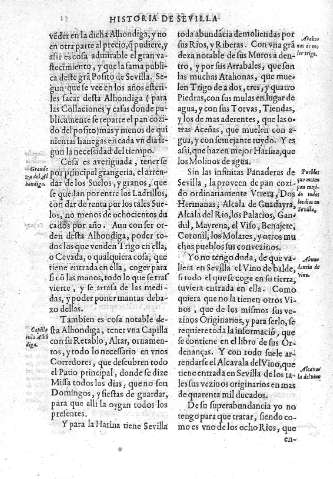 HISTORIA DE SEVILLA
veder en la dicha Alhondiga, y no
en otra parte el precio, q̃ pudiere, y
assi es cosa admirable el gran va-
stecimiento, y que la fama publi-
ca deste grã Posito de Sevilla. Se-
gun que se ven en los años esteri-
les sacar desta Alhondiga (para
las Collaciones y calas donde pu-
blicamente se reparte el pan cozi-
do del posito) mas y menos de qui
nientas hanegas en cada vn dia se-
gun la necessidad del tiempo.
Cosa es averiguada, tenerse
por principal grangeria, el arren-
dar de los Suelos, y granos, que
se que jan por entre los Ladrillos,
con dar de renta por los tales Sue-
los, no menos de ochocientos du
cados por año. Aun con ser or-
den desta Alhondiga, poder to-
dos los que venden Trigo en ella,
o Cevada, o qualquiera cosa, que
tiene entrada en ella, coger para
si cõ las manos, todo lo que se rra
vierte, y se arrasa de las medi-
das, y poder poner mantas deba-
xo dellas.
Tambien es cosa notable de-
sta Alhondiga, tener vna Capilla
con su Retablo, Altar, ornamen-
tos, y todo lo necessario en vnos
Corredores, que descubren todo
el Patio principal, donde se dize
Missa todos los dias, que no sean
Domingos, y fiestas de guardar,
para que alli la oygan todos los
presentes.
Y para la Harina tiene Sevilla
Capilla
toda abundãcia de moliendas por
sus Rios, y Riberas. Con vna grã
deza notable de sus Muros a den-
tro, y por sus Arrabales, que son
las muchas Atahonas, que mue-
len Trigo de a dos, tres, y quatro
Piedras, con sus mulas en lugar de
agua, y con sus Tolvas, Tiendas,
y los de mas aderentes, que las o-
tras Aceñas, que muelen con a-
gua, y con semejante ruydo. Y es
assi, que hazen mejor Harina, que
los Molinos de agua.
Sin las infinitas Panaderas de
Sevilla, la proveen de pan cozi-
do ordinariamente Vtrera, Dos
Hermanas, Alcala de Guadayra,
Alcala del Rio, los Palacios, Gan-
dul, Mayrena, el Viso, Benajete,
Coronil, los Molares, y otros mu
chos pueblos sus convezinos.
Yo no tengo duda, de que va-
liera en Sevilla el Vino de balde,
si todo el que se coge en su tierra,
tuviera entrada en ella. Como
quiera que no la tienen otros Vi-
nos, que de los mismos sus ve-
zinos Originarios, y para serlo, se
requiere toda la informaciõ, que
se contiene en el libro de sus Or-
denanças. Y con todo suele ar-
rendarse el Alcavala del Vino, que
tiene entrada en Sevilla de los ta-
les sus vezinos originarios en mas
de quarenta mil ducados.
De su superabundancia yo no
tengo para que tratar, siendo co-
mo es vno de los ocho Rios, que
en-